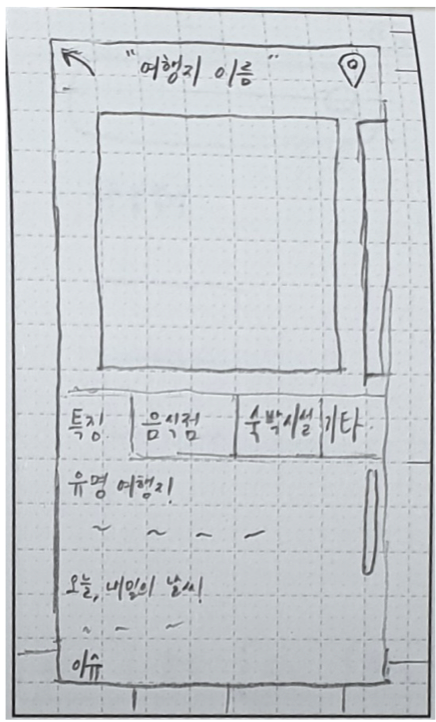 "여행지 이름"
특징 음식점 숙박시설 기타
유명 여행지!
~ ~ ~ ~
오늘, 내일의 날씨!
~ ~ ~
이슈